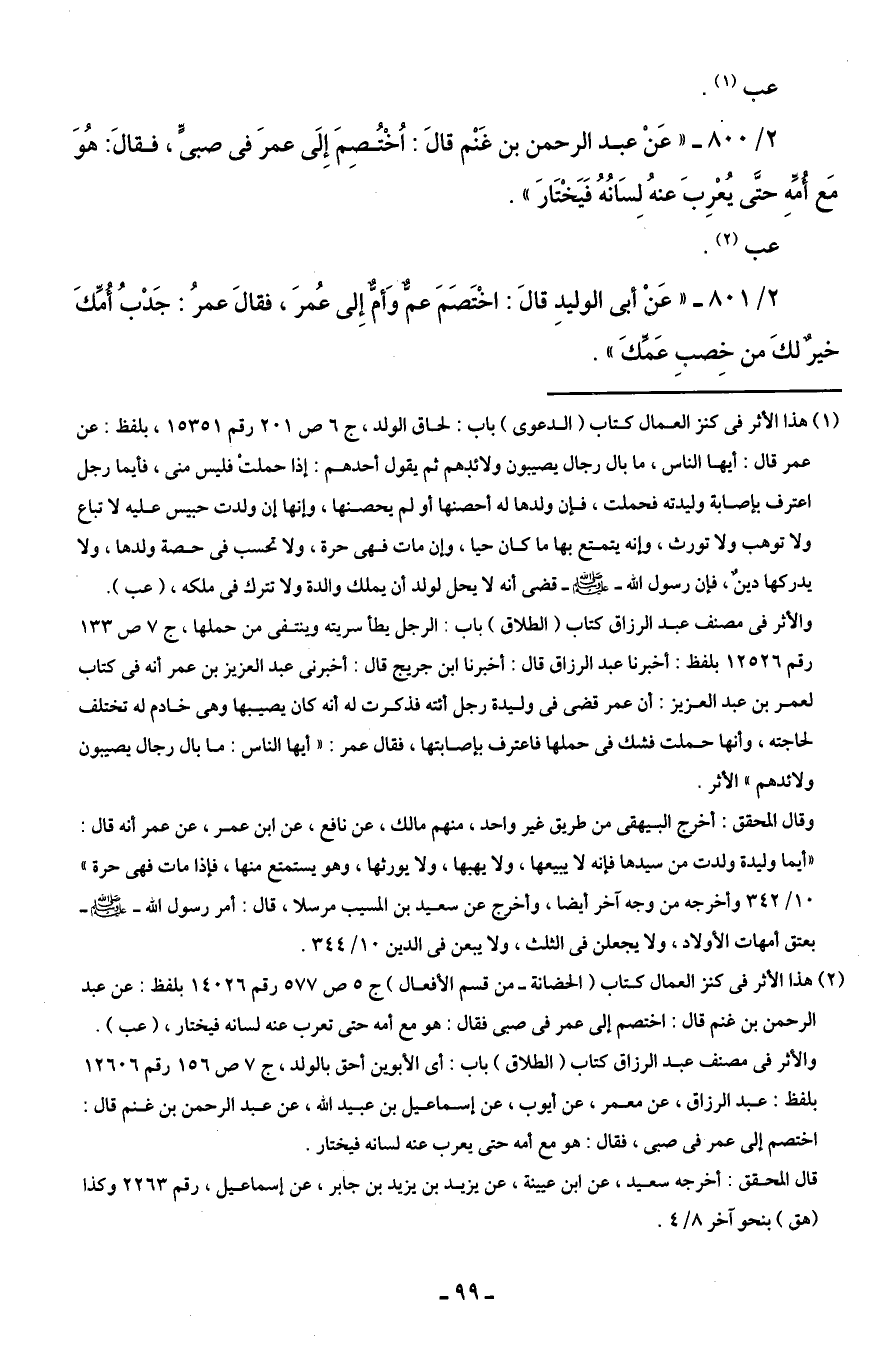 عب (١) .
٢/ ٨٠٠ ـ « عَنْ عبـد الرحمن بن غَنْم قالَ : اُخْتُـصِمَ إِلَى عمرَ فى صبىٍّ ، فـقالَ: هُوَ
مَع أُمِّهِ حتَّى يُعْرِبَ عنهُ لِسَانُهُ فَيَخْتَارَ » .
عب (٢) .
٢/ ٨٠١ ـ « عَنْ أبى الوليدِ قالَ : اخْتَصَمَ عمٌّ وَأمٌّ إلى عُمرَ ، فقالَ عمرُ : جَدْبُ أُمِّكَ
خيرٌ لكَ من خِصبِ عَمِّكَ » .
(١) هذا الأثر فى كنز العمال كـتاب ( الـدعوى ) باب : لحاق الولد ، ج ٦ ص ٢٠١ رقم ١٥٣٥١ ، بلفظ : عن
عمر قال : أيهـا الناس ، ما بال رجال يصيبون ولائدهم ثم يقول أحدهـم : إذا حملتْ فليس منى ، فأيما رجل
اعترف بإصـابة وليدته فحملت ، فـإن ولدها له أحصنها أو لم يحصـنها ، وإنها إن ولدت حبيس عـليه لا تباع
ولا توهب ولا تورث ، وإنه يتمـتع بها ما كـان حيا ، وإن مات فـهى حرة ، ولا تحسب فى حـصة ولدها ، ولا
يدركها دينٌ ، فإن رسول الله ـ ﷺ ـ قضى أنه لا يحل لولد أن يملك والدة ولا تترك فى ملكه ، ( عب ).
والأثر فى مصنف عبـد الرزاق كتاب ( الطلاق ) باب : الرجل يطأ سريته وينتـفى من حملها ، ج ٧ ص ١٣٣
رقم ١٢٥٢٦ بلفظ : أخبرنا عبد الرزاق قال : أخبرنا ابن جريج قال : أخبرنى عبد العزيز بن عمر أنه فى كتاب
لعمـر بن عبد العـزيز : أن عمر قضى فى ولـيدة رجل أتته فذكـرت له أنه كان يصيـبها وهى خـادم له تختلف
لحاجته ، وأنها حـملت فشك فى حملها فاعترف بإصابتها ، فقال عمر : « أيها الناس : مـا بال رجال يصيبون
ولائدهم » الأثر .
وقال المحقق : أخرج البـيهقى من طريق غير واحد ، منهم مالك ، عن نافع ، عن ابن عمـر ، عن عمر أنه قال :
«أيما وليدة ولدت من سيدها فإنه لا يبيعها ، ولا يهبها ، ولا يورثها ، وهو يستمتع منها ، فإذا مات فهى حرة »
١٠/ ٣٤٢ وأخرجه من وجه آخر أيضا ، وأخرج عن سعيد بن المسيب مرسلا ، قال : أمر رسول الله ـ ﷺ ـ
بعتق أمهات الأولاد ، ولا يجعلن فى الثلث ، ولا يبعن فى الدين ١٠/ ٣٤٤ .
(٢) هذا الأثر فى كنز العمال كـتاب ( الحضانة ـ من قسم الأفعـال ) ج ٥ ص ٥٧٧ رقم ١٤٠٢٦ بلفظ : عن عبد
الرحمن بن غنم قال : اختصم إلى عمر فى صبى فقال : هو مع أمه حتى تعرب عنه لسانه فيختار ، ( عب ) .
والأثر فى مصنف عبـد الرزاق كتاب ( الطلاق ) باب : أى الأبوين أحق بالولد ، ج ٧ ص ١٥٦ رقم ١٢٦٠٦
بلفظ : عـبد الرزاق ، عن معـمر ، عن أيوب ، عن إسـماعيل بن عبـيد الله ، عن عـبد الرحمن بن غـنم قال :
اختصم إلى عمر فى صبى ، فقال : هو مع أمه حتى يعرب عنه لسانه فيختار .
قال المحـقق : أخرجه سعيد ، عن ابن عيينة ، عن يزيـد بن يزيد بن جابر ، عن إسماعيل ، رقم ٢٢٦٣ وكذا
(هق ) بنحو آخر ٨/ ٤ .
ـ ٩٩ ـ